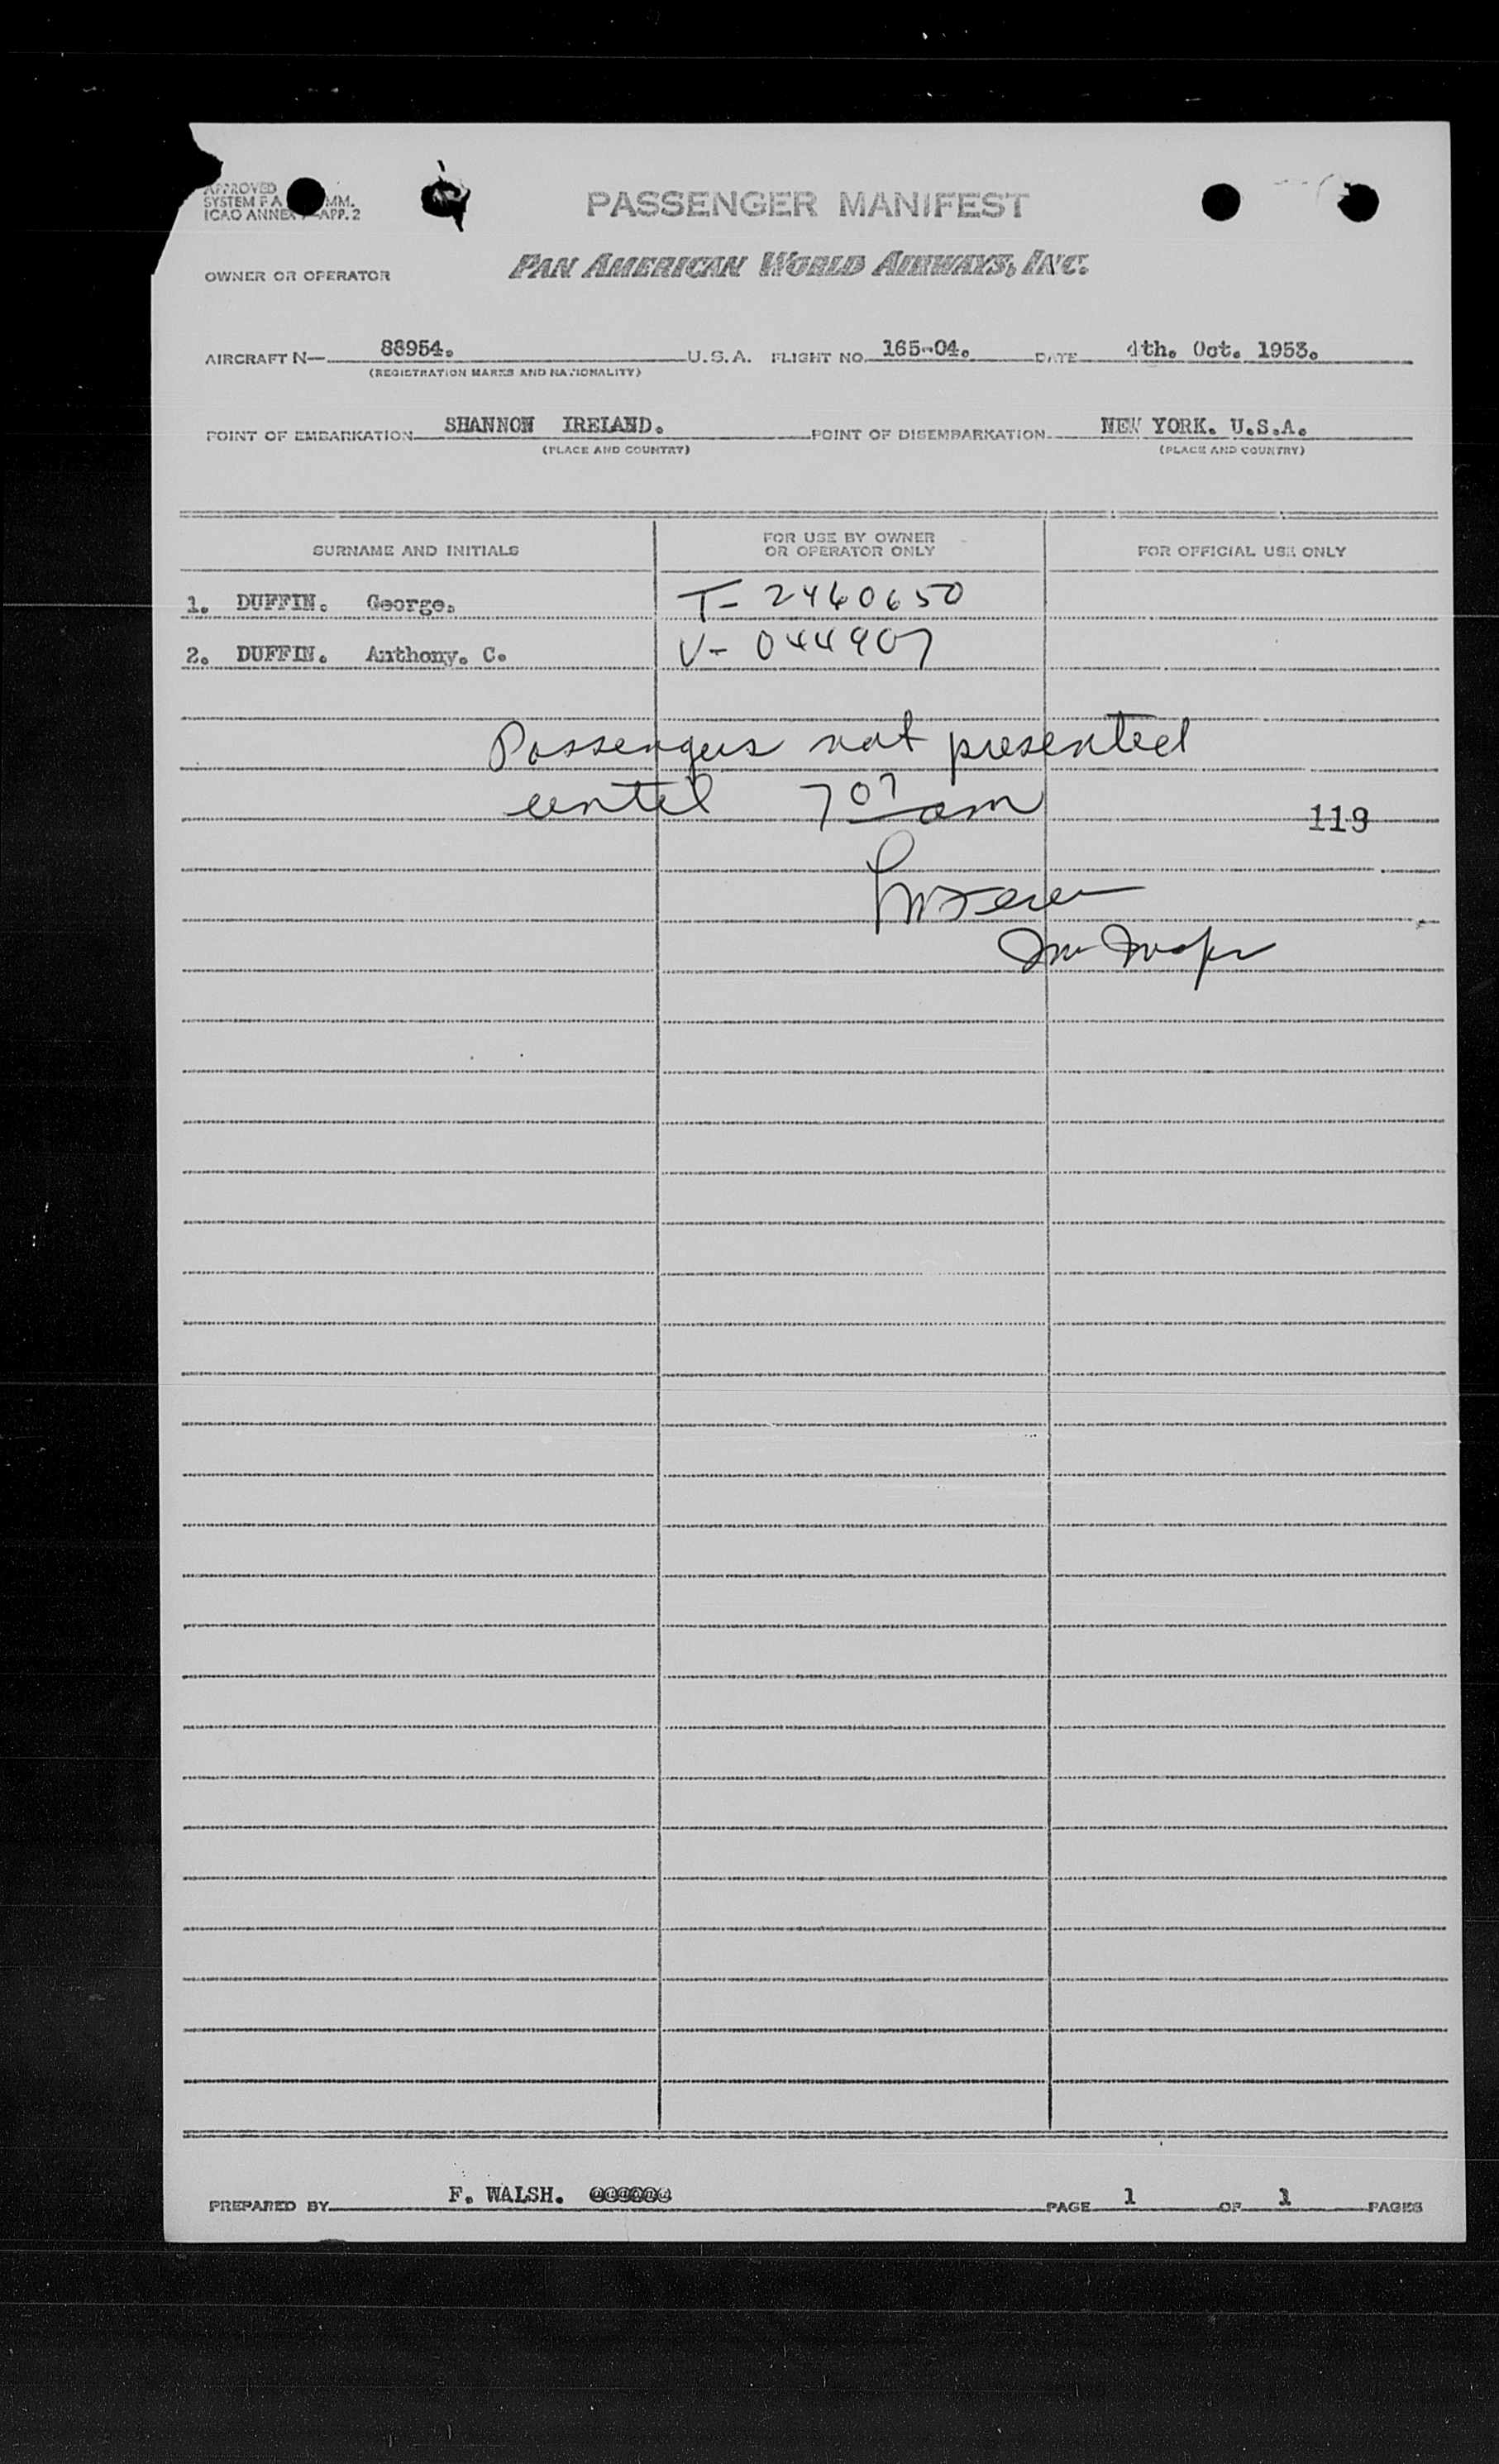 APPROVED
SYSTEM P.A. MM.
ICAO ANNEX APP. 2
PASSENGER MANIFEST
OWNER OR OPERATOR PAN AMERICAN WORLD AIRWAYS, INC.
AIRCRAFT N— 88954. U.S.A. FLIGHT NO. 165-04. DATE 4th. Oct. 1953.
(REGISTRATION MARKS AND NATIONALITY)
POINT OF EMBARKATION SHANNON IRELAND. POINT OF DISEMBARKATION NEW YORK. U.S.A.
(PLACE AND COUNTRY) (PLACE AND COUNTRY)
SURNAME AND INITIALS FOR USE BY OWNER OR OPERATOR ONLY FOR OFFICIAL USE ONLY
1. DUFFIN. George. T- 2460650
2. DUFFIN. Anthony. C. V- 044907
Passengers not presented
until 7 07 am
119
PREPARED BY F. WALSH. PAGE 1 OF 1 PAGES